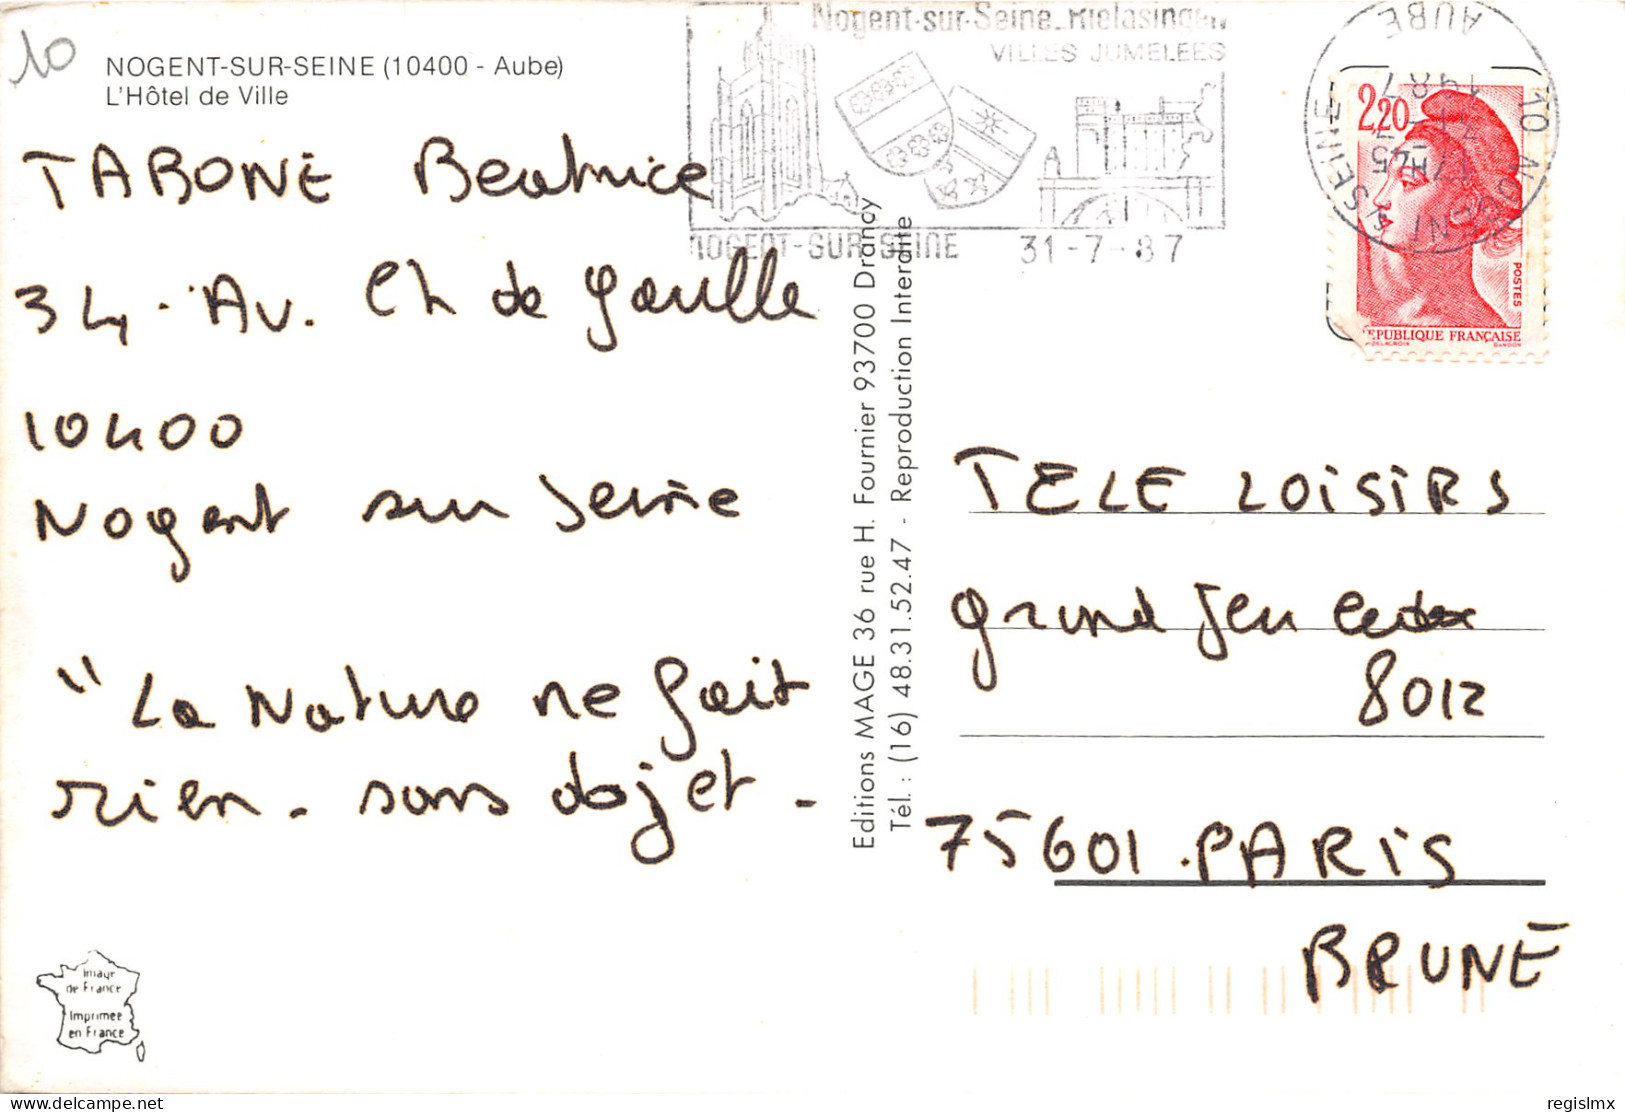 10
NOGENT-SUR-SEINE (10400 - Aube)
L'Hôtel de Ville
TABONE Beatrice
34 - Av. Ch de Gaulle
10400
Nogent sur Seine
"La Nature ne fait
rien - sans objet -
Image
de France
Imprimée
en France
Editions MAGE 36 rue H. Fournier 93700 Drancy
Tél. : (16) 48.31.52.47 - Reproduction Interdite
Nogent-sur-Seine-Rielasingen
VILLES JUMELEES
NOGENT-SUR-SEINE 31-7-87
10 NOGENT S/ SEINE
AUBE
17H
1987
2,20
POSTES
REPUBLIQUE FRANÇAISE
DELACROIX GANDON
TELE LOISIRS
grand jeu
8012
75601 PARIS
BRUNE
regislmx